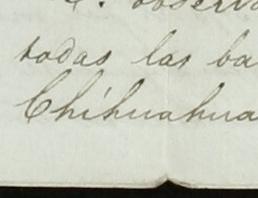 C. observa
todas las ba
Chihuahua